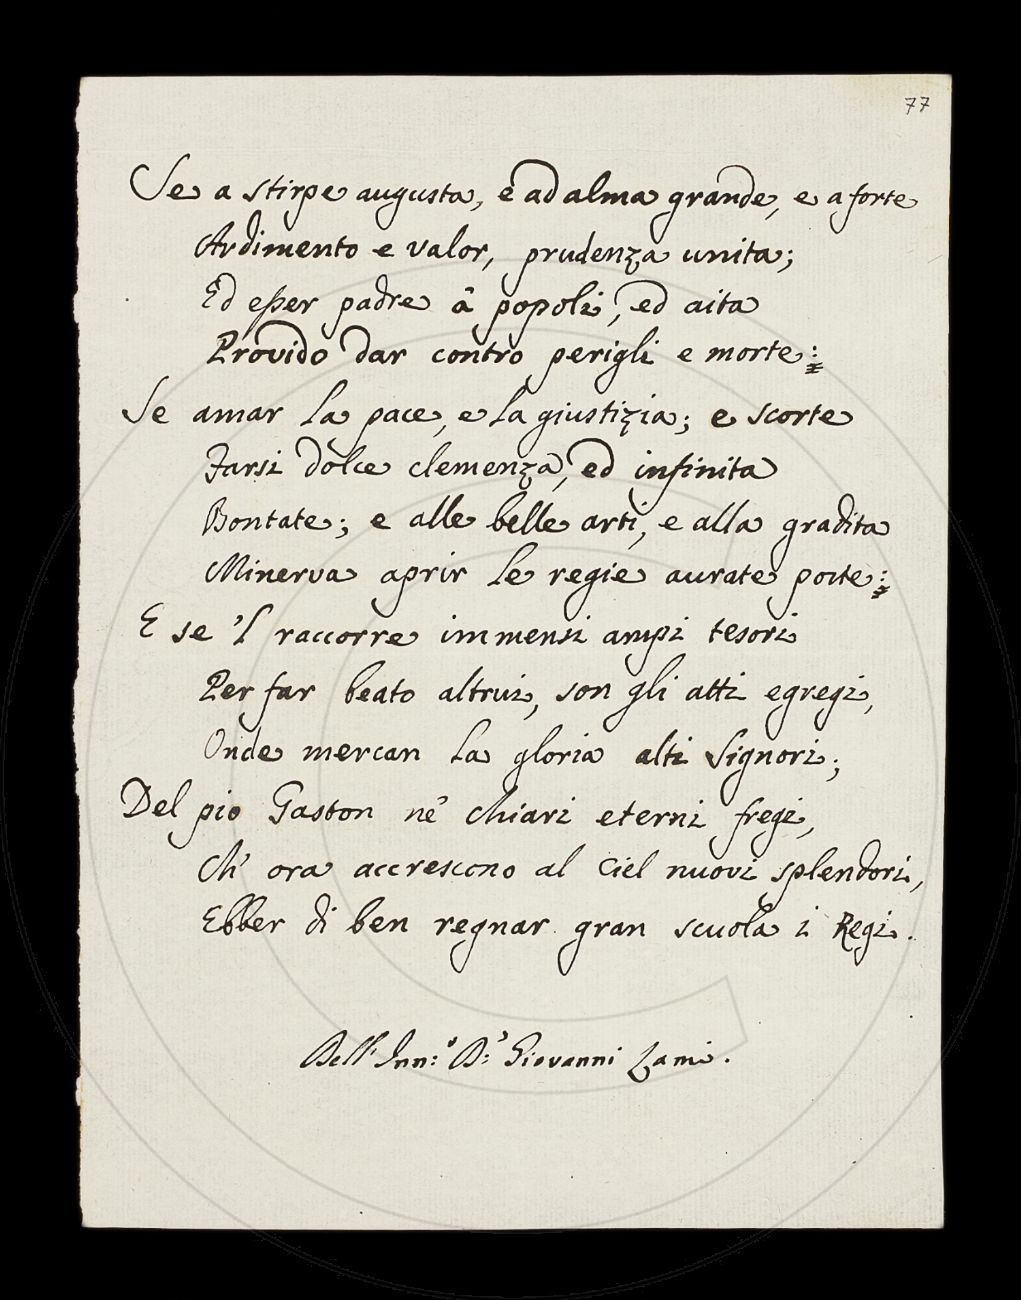 77
Se a stirpe augusta, e ad alma grande, e a forte
Ardimento e valor, prudenza unita;
Ed esser padre â popoli, ed aita
Provido dar contro perigli e morte:
Se amar la pace, e la giustizia; e scorte
Farsi dolce clemenza, ed infinita
Bontate; e alle belle arti, e alla gradita
Minerva aprir le regie aurate porte:
E se 'l raccorre immensi ampi tesori
Per far beato altrui, son gli atti egregi,
Onde mercan la gloria alti Signori;
Del pio Gaston nè chiari eterni fregi,
Ch' ora accrescono al Ciel nuovi splendori,
Ebber di ben regnar gran scuola i Regi.
Dell' Inn:º D:ʳ Giovanni Lami.